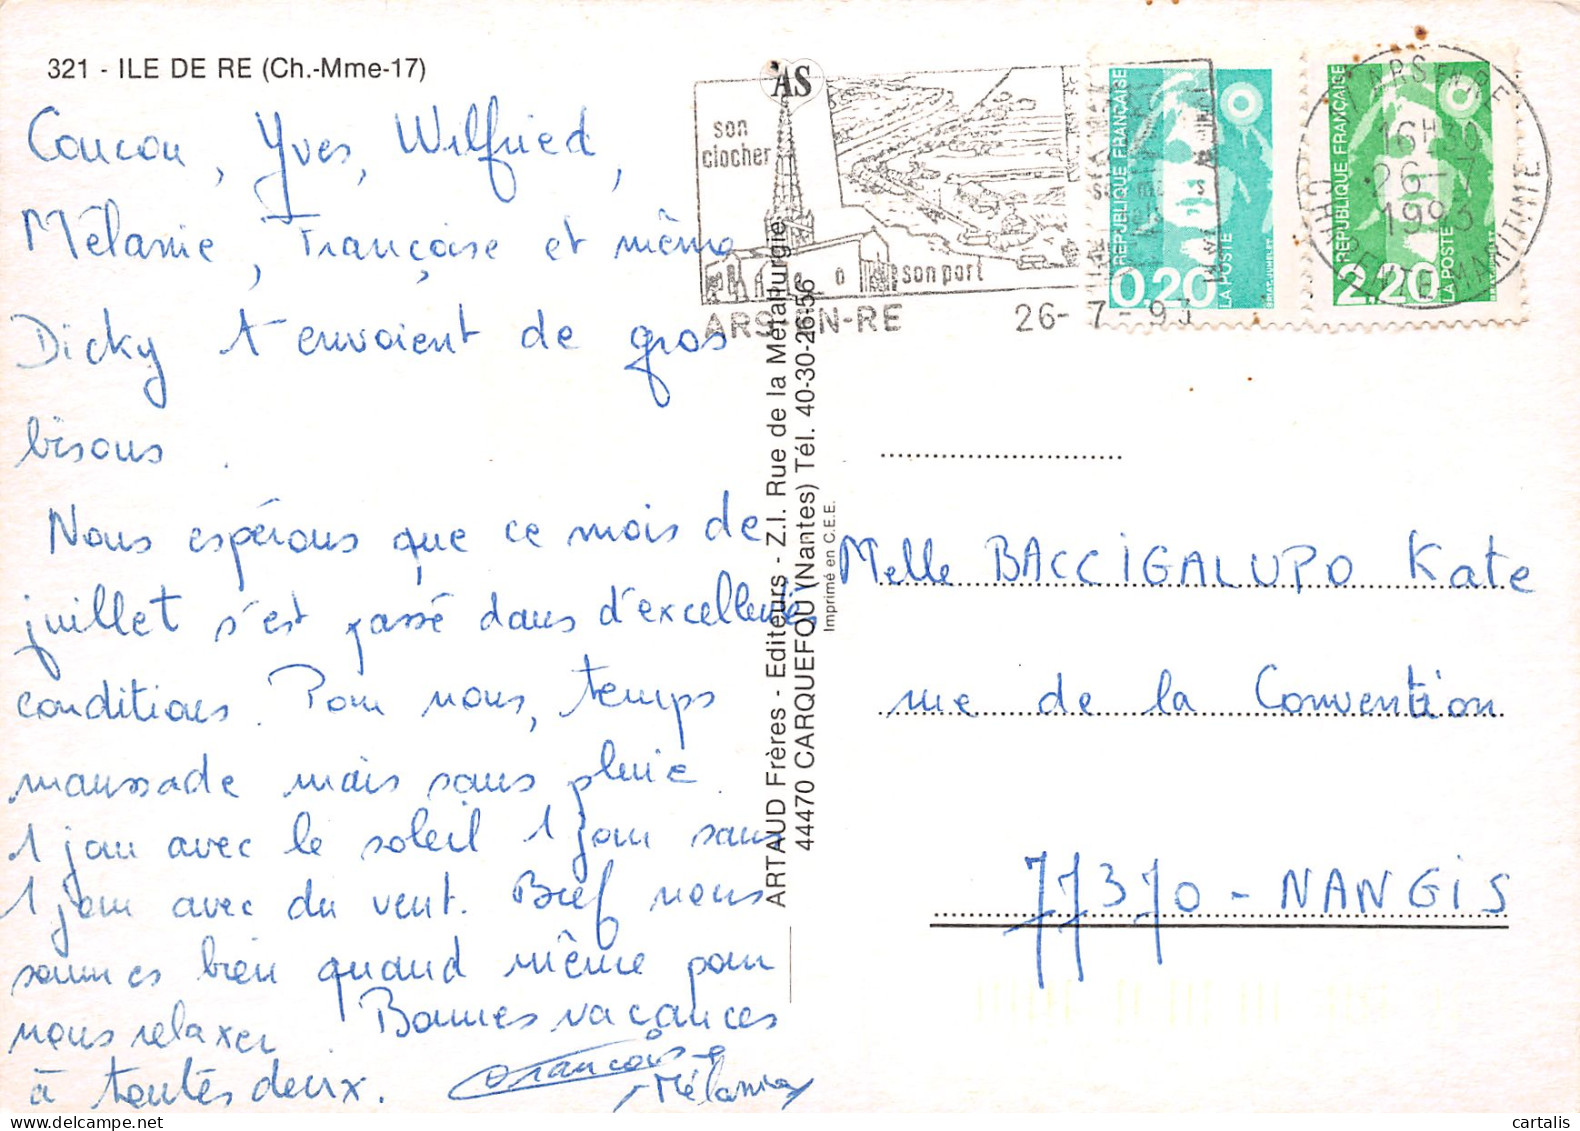 321 - ILE DE RE (Ch.-Mme-17)
Coucou, Yves, Wilfried,
Mélanie, Françoise et même
Dicky t'envoient de gros
bisous.
Nous espérons que ce mois de
juillet s'est passé dans d'excellentes
conditions. Pour nous, temps
maussade mais sans pluie
1 jour avec le soleil 1 jour sans
1 jour avec du vent. Bref nous
sommes bien quand même pour
nous relaxer. Bonnes vacances
à toutes deux. Françoise
Mélanie
ARTAUD Frères - Editeurs - Z.I. Rue de la Métallurgie
44470 CARQUEFOU (Nantes) Tél. 40-30-26-56
Imprimé en C.E.E.
AS
son
clocher
son port
ARS-EN-RE
26-7-93
REPUBLIQUE FRANÇAISE
0,20
LA POSTE
REPUBLIQUE FRANÇAISE
2,20
LA POSTE
ARS EN RE
16H30
26-7
1993
CHARENTE MARITIME
Melle BACCIGALUPO Kate
rue de la Convention
77370 - NANGIS
cartalis